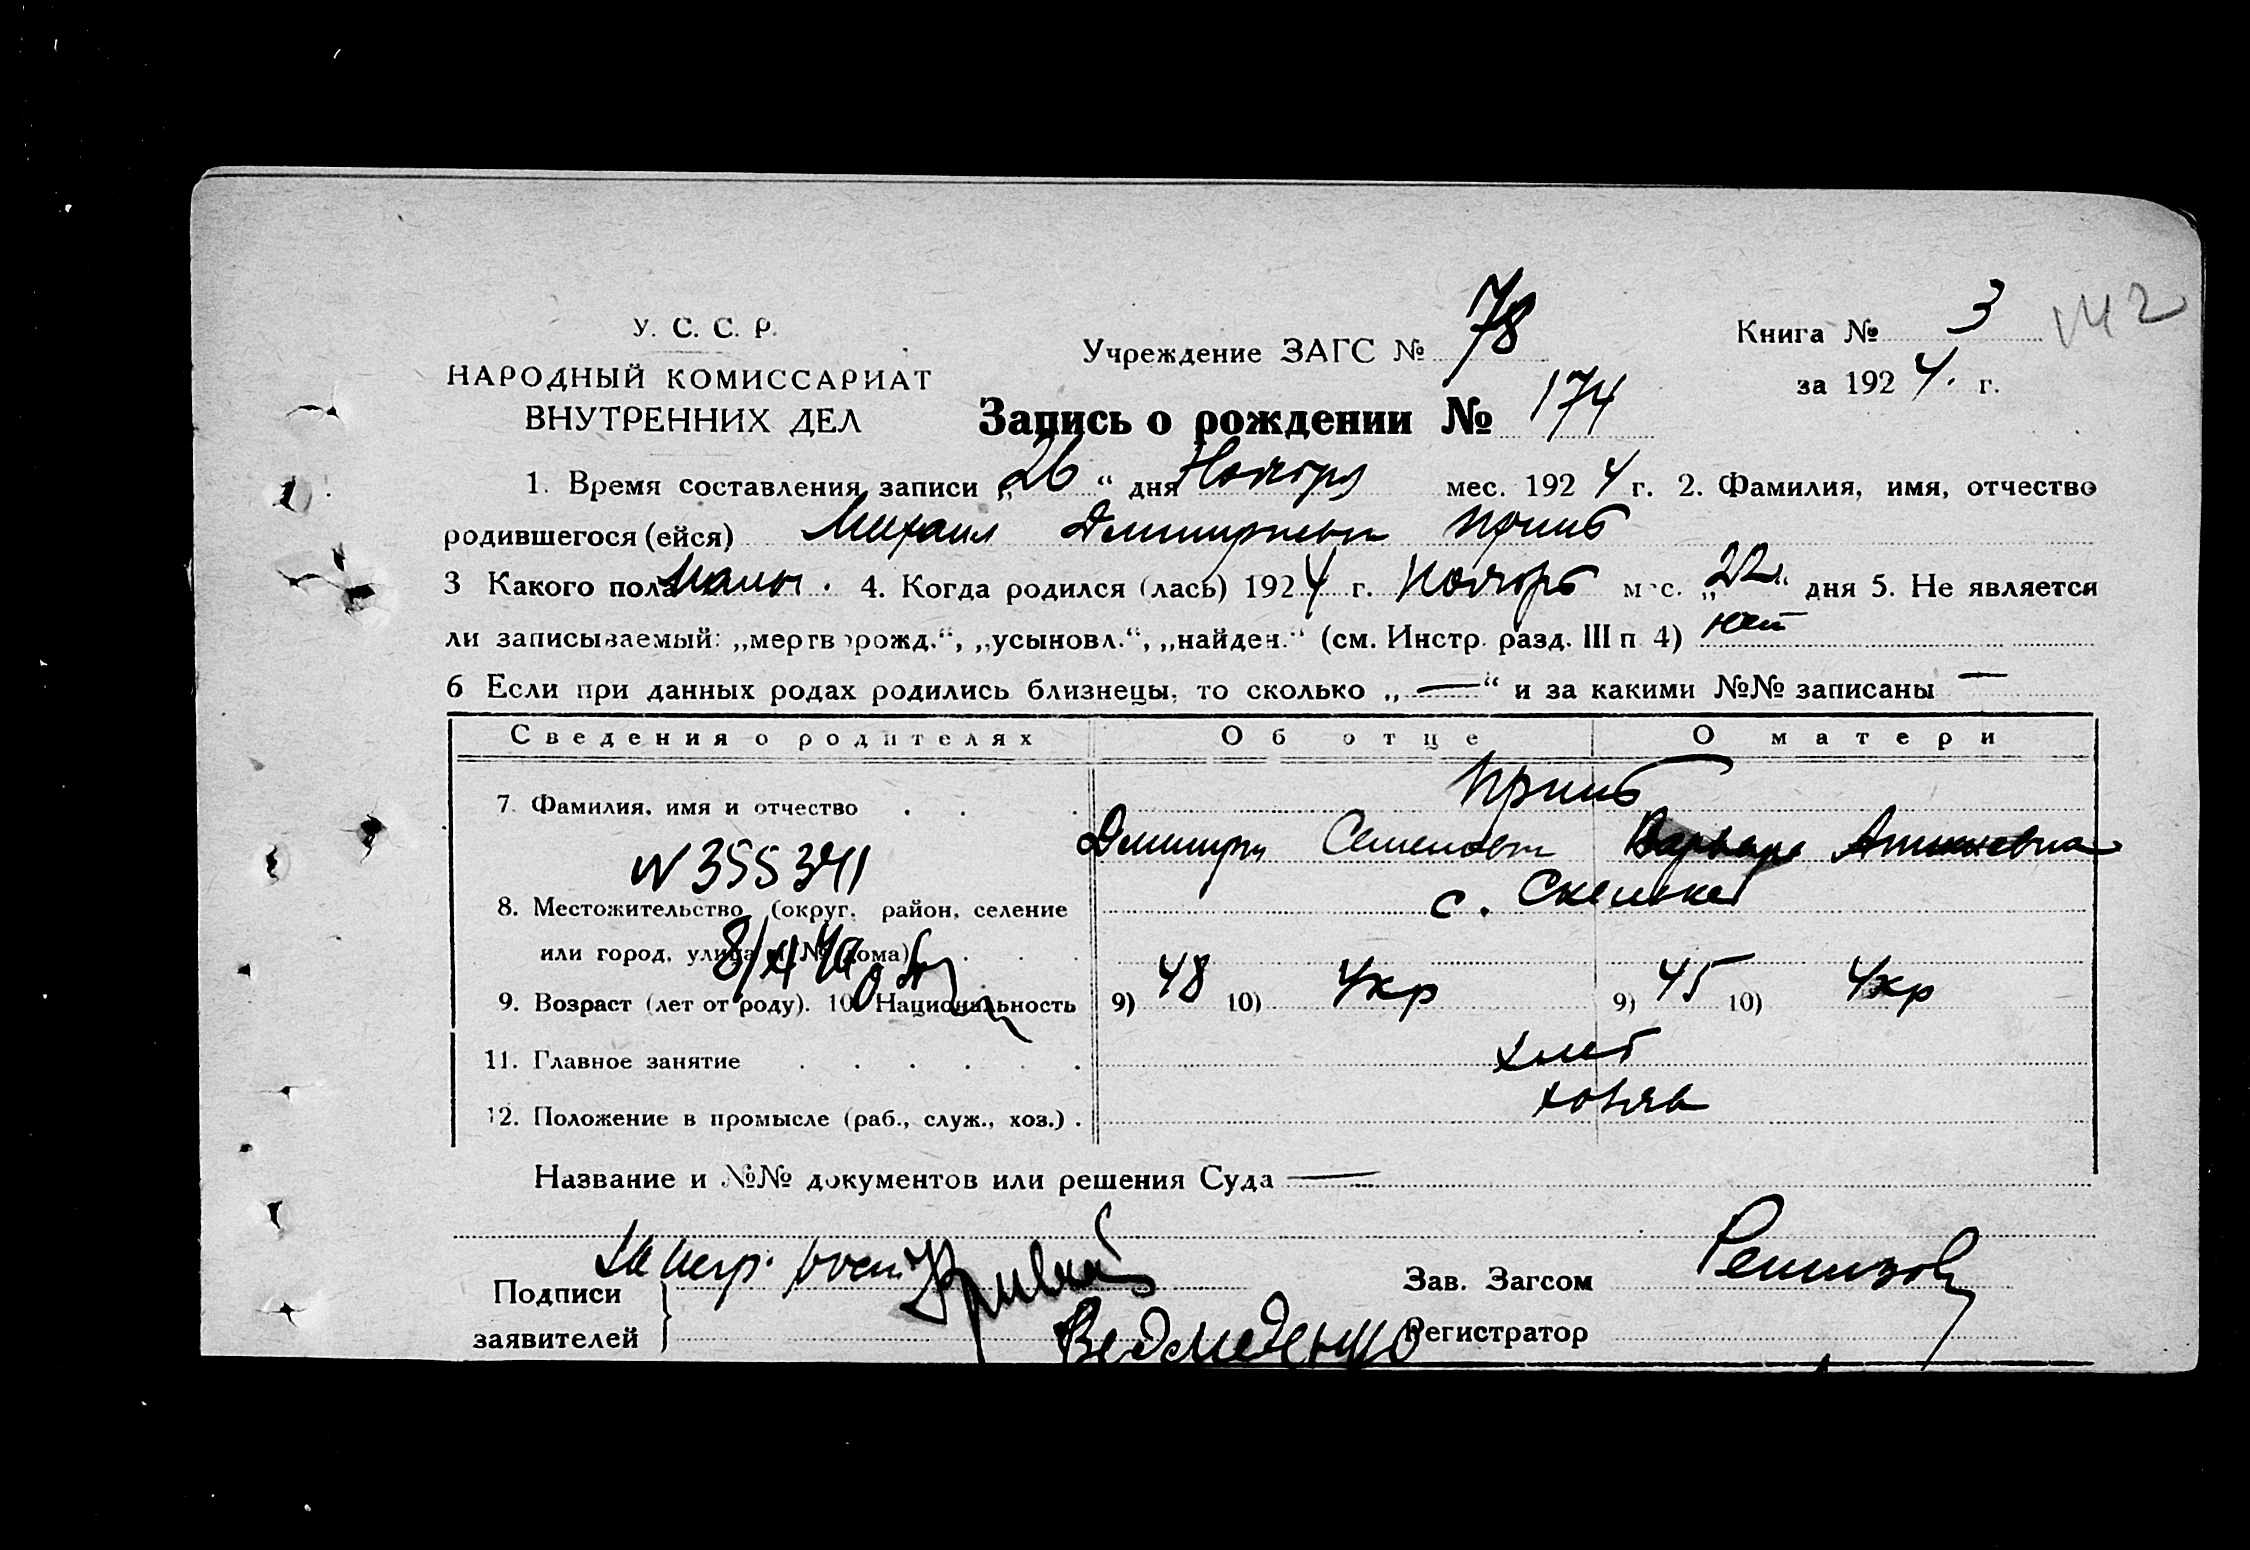 У. С. С. Р.
НАРОДНЫЙ КОМИССАРИАТ
ВНУТРЕННИХ ДЕЛ
Учреждение ЗАГС № 78
Книга № 3
142
за 1924. г.
Запись о рождении № 174
1. Время составления записи „26“ дня Ноября мес. 1924 г. 2. Фамилия, имя, отчество
родившегося (ейся) Михаил Дмитриевич
3 Какого пола 4. Когда родился (лась) 1924 г. Ноябрь мес. „22“ дня 5. Не является
ли записываемый: „мертворожд.“, „усыновл.“, „найден.“ (см. Инстр. разд. III п 4) нет
6 Если при данных родах родились близнецы, то сколько „—“ и за какими №№ записаны —
Сведения о родителях Об отце О матери
7. Фамилия, имя и отчество
Дмитрий Семенович Варвара
N 355341
8. Местожительство (округ, район, селение с.
или город, улица и № дома)
9. Возраст (лет от роду). 10. Национальность 9) 48 10) Укр 9) 45 10) Укр
11. Главное занятие хлеб
12. Положение в промысле (раб., служ., хоз.) хозяев
Название и №№ документов или решения Суда —
Подписи
заявителей
Зав. Загсом
Регистратор